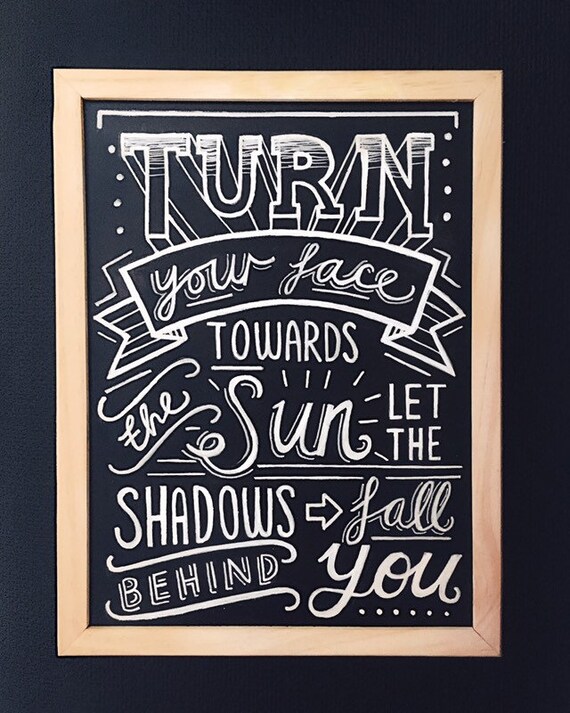 TURN
your face
TOWARDS
the Sun LET
THE
SHADOWS ⇨ fall
BEHIND you